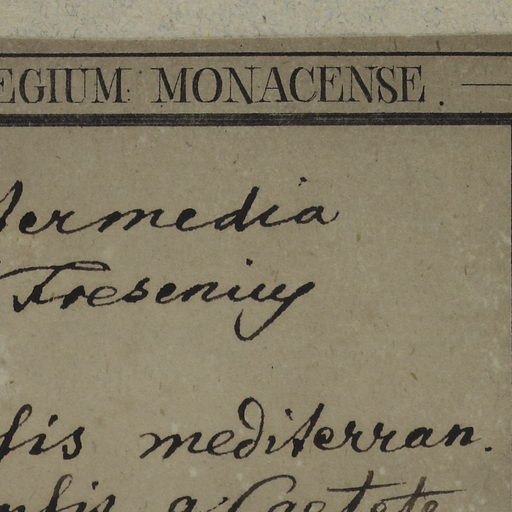 EGIUM MONACENSE.
termedia
Fresenius
sis mediterran.